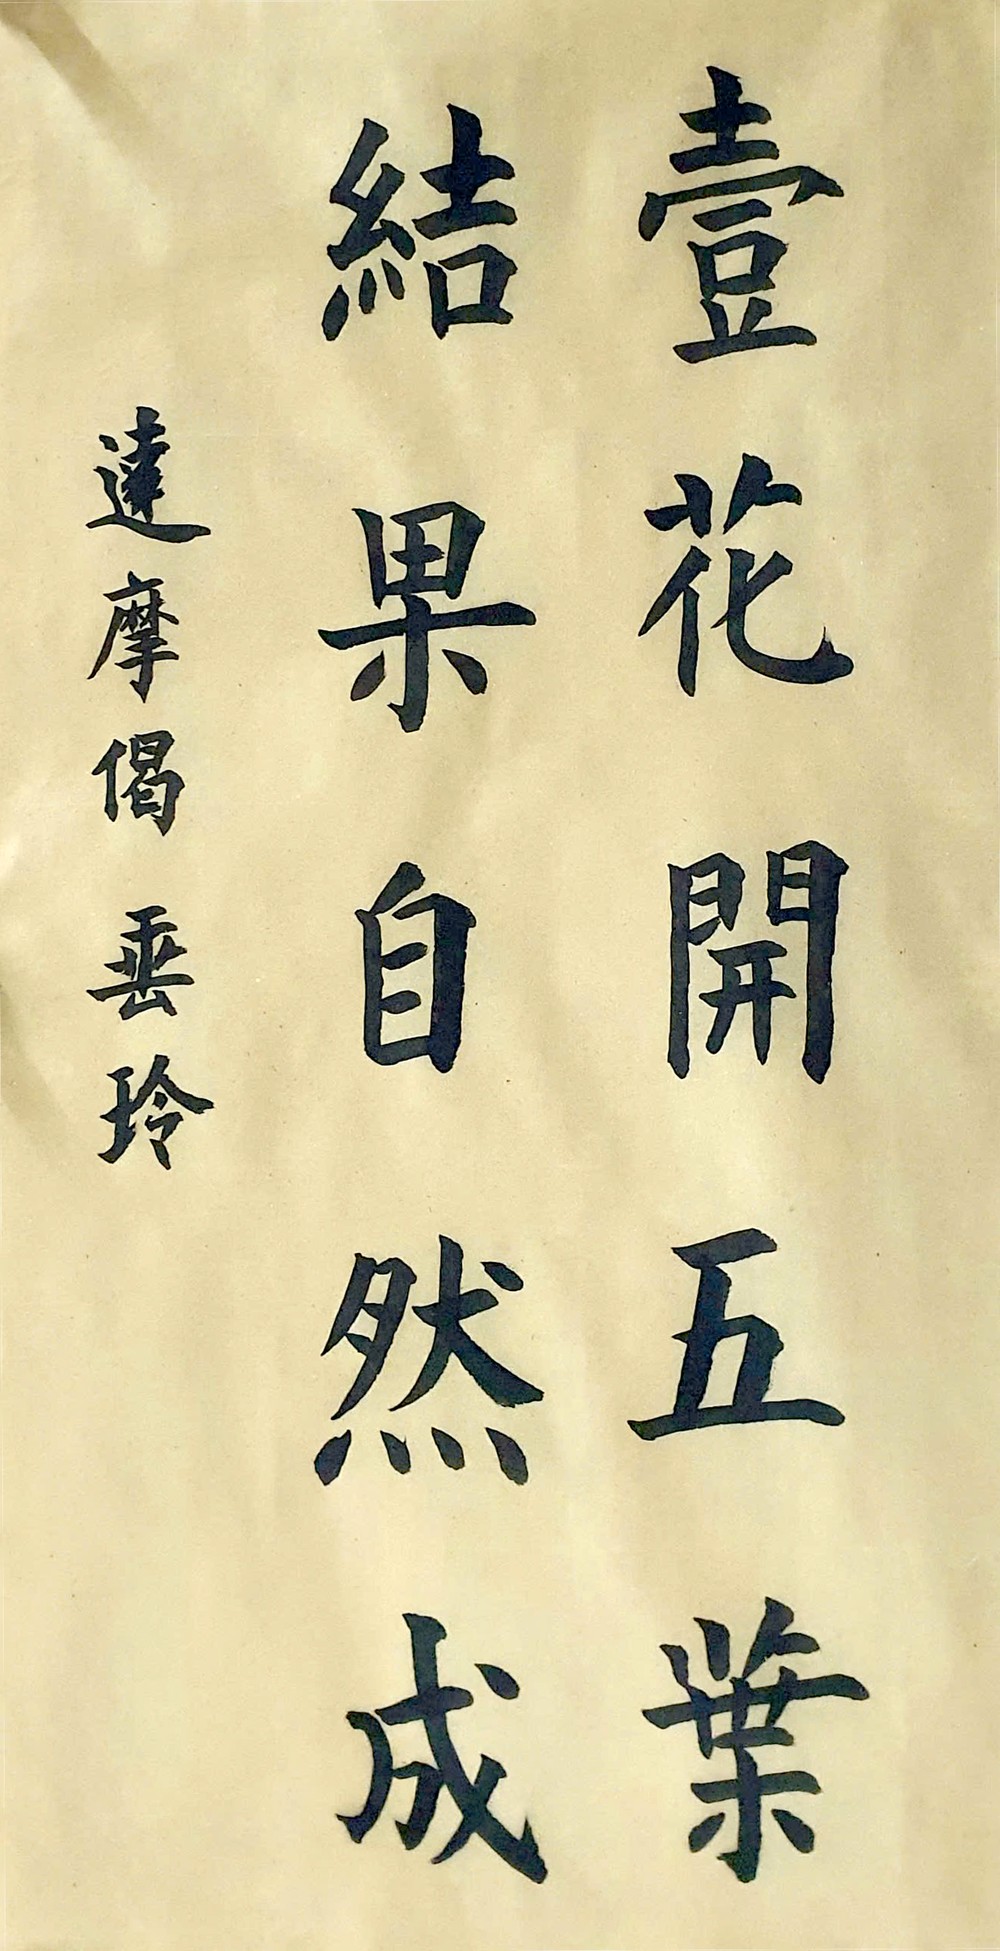 壹花開五葉
結果自然成
達摩偈 垂玲